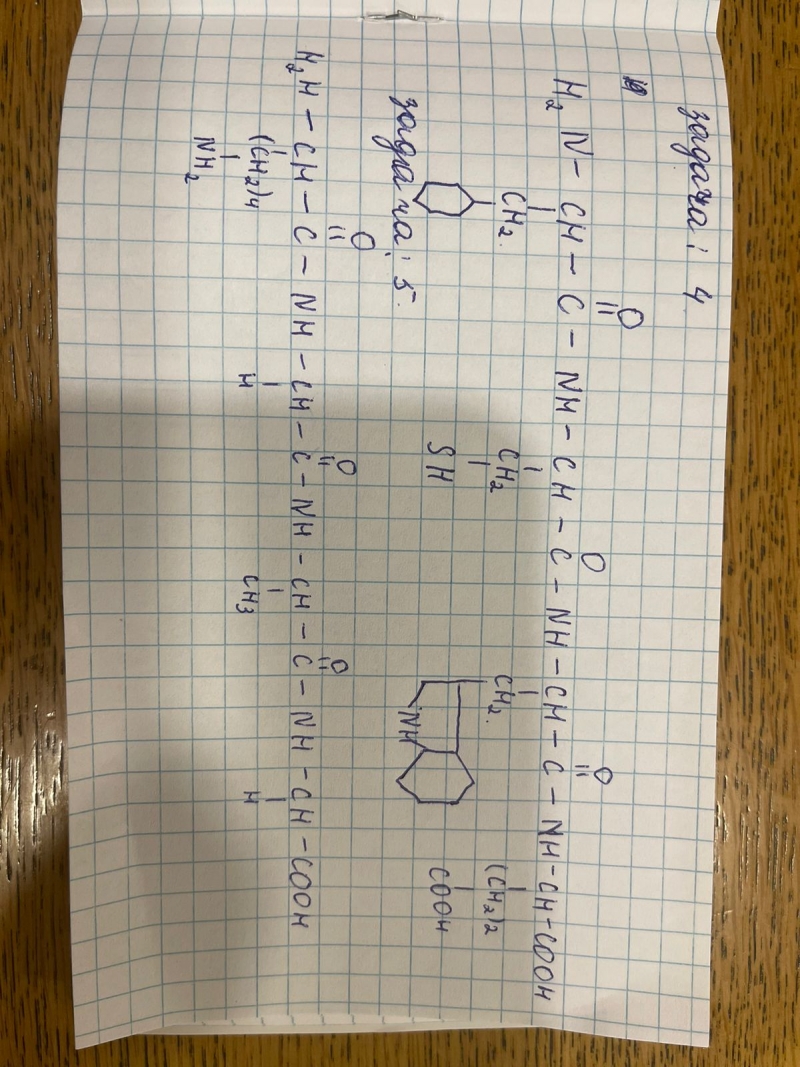 задача: 4
O O O
H₂N - CH - C - NH - CH - C - NH - CH - C - NH - CH - COOH
CH₂ CH₂ CH₂ (CH₂)₂
SH NH COOH
задача: 5.
O O O
H₂H - CH - C - NH - CH - C - NH - CH - C - NH - CH - COOH
(CH₂)₄ H CH₃ H
NH₂